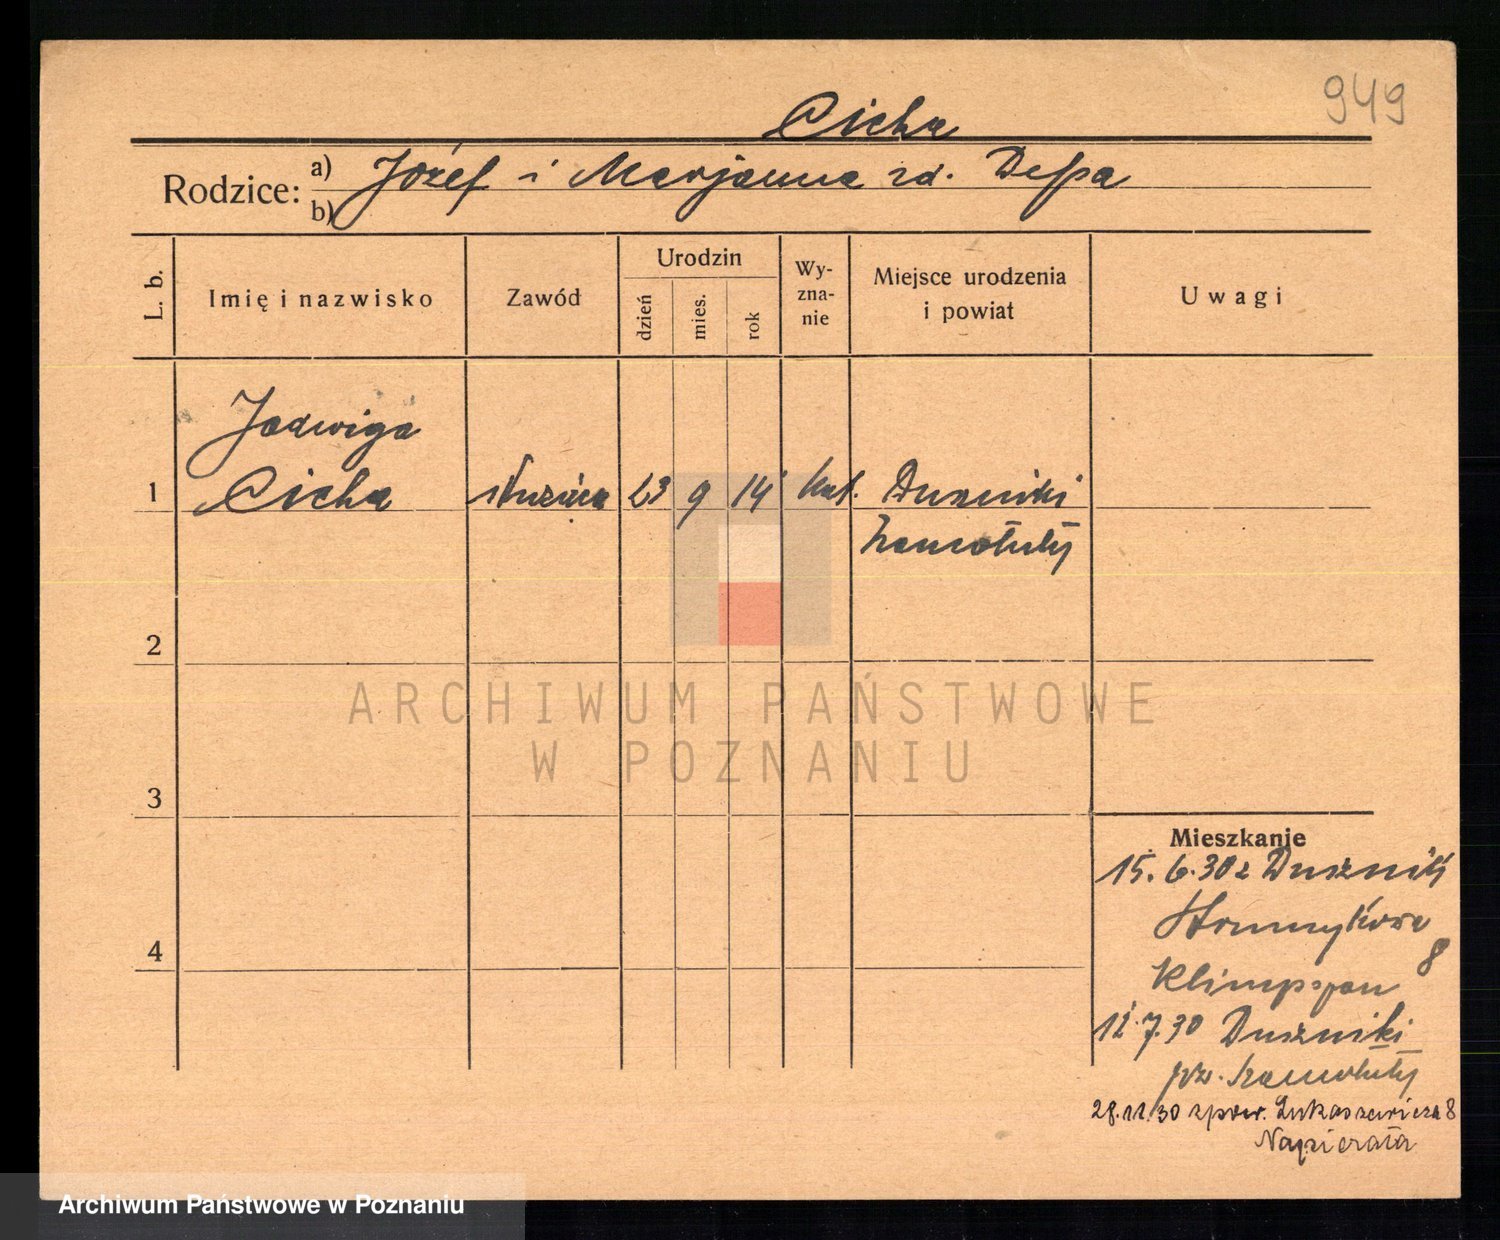 949
Cicha
Rodzice: a) Józef i Marjanna zd. Depa
b)
L. b.
Imię i nazwisko
Zawód
Urodzin
dzień
mies.
rok
Wy-
zna-
nie
Miejsce urodzenia
i powiat
Uwagi
Jadwiga
1 Cicha służąca 23 9 14 kat. Duszniki
Szamotuły
2
3
4
Mieszkanie
15. 6. 30 z Duszniki
8
12.7.30 Duszniki
pow. Szamotuły
28.11.30 zpow. Łukaszewicza 8
Napierała
ARCHIWUM PAŃSTWOWE
W POZNANIU
Archiwum Państwowe w Poznaniu